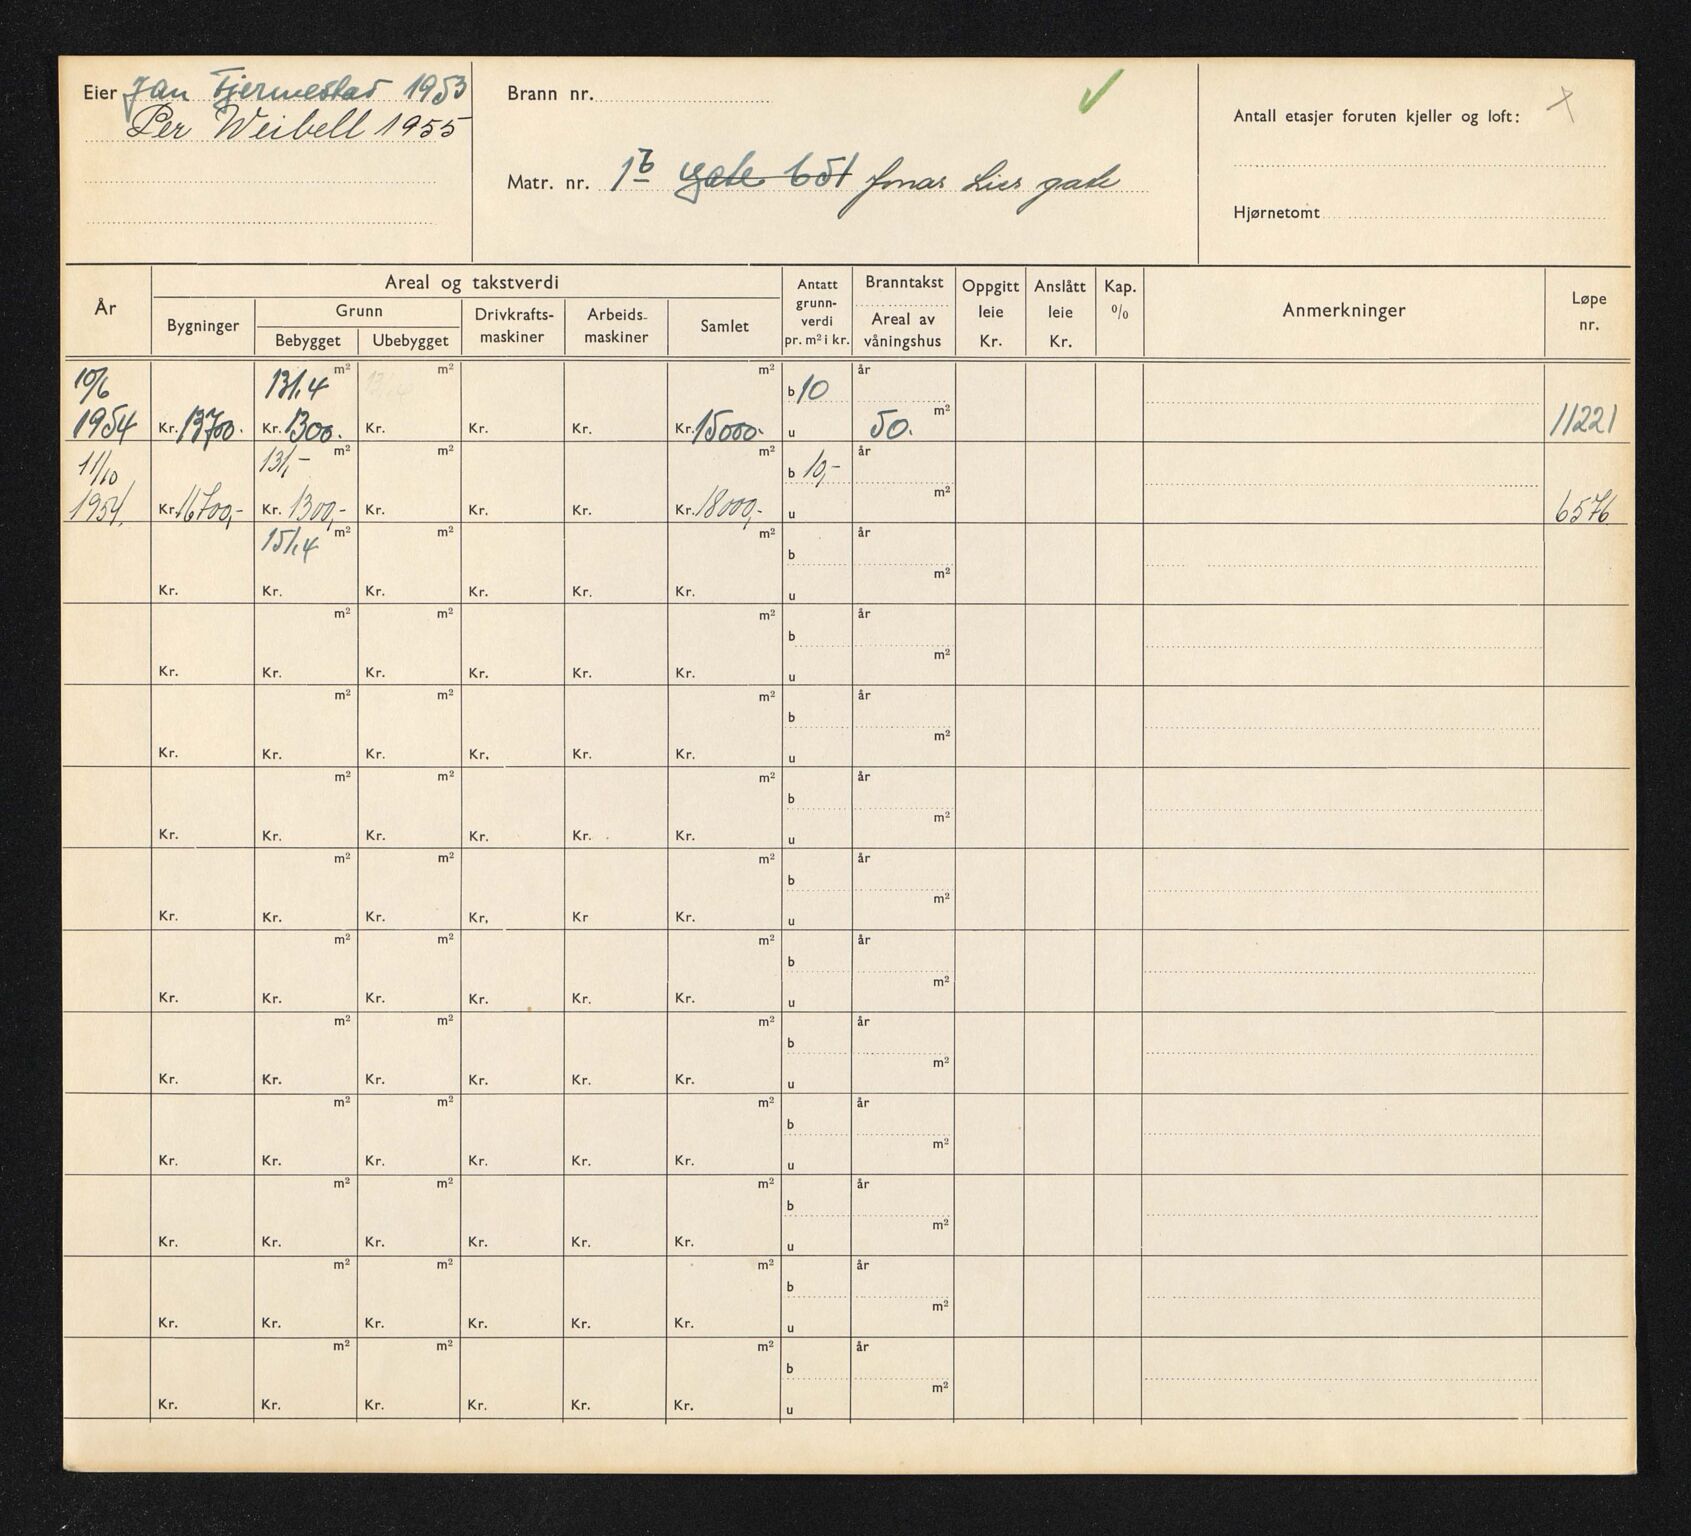 Eier Jan Tjermestad 1953
Per Weibell 1955
Brann nr.
Matr. nr. 1b gate 651 Jonas Lies gate
Antall etasjer foruten kjeller og loft:
Hjørnetomt
År
Areal og takstverdi
Bygninger
Grunn
Bebygget
Ubebygget
Drivkrafts-
maskiner
Arbeids-
maskiner
Samlet
Antatt
grunn-
verdi
pr. m² i kr.
Branntakst
Areal av
våningshus
Oppgitt
leie
Kr.
Anslått
leie
Kr.
Kap.
%
Anmerkninger
Løpe
nr.
10/6 131,4 m² m² m² b 10 år
1954 Kr. 13700.- Kr. 1300.- Kr. Kr. Kr. Kr. 15000.- u 50. m² 11221
11/10 131,- m² m² m² b 10,- år
1954. Kr. 16700,- Kr. 1300,- Kr. Kr. Kr. Kr. 18000,- u m² 6576
151,4 m² m² m² b år
Kr. Kr. Kr. Kr. Kr. Kr. u m²
m² m² m² b år
Kr. Kr. Kr. Kr. Kr. Kr. u m²
m² m² m² b år
Kr. Kr. Kr. Kr. Kr. Kr. u m²
m² m² m² b år
Kr. Kr. Kr. Kr. Kr. Kr. u m²
m² m² m² b år
Kr. Kr. Kr. Kr, Kr Kr. u m²
m² m² m² b år
Kr. Kr. Kr. Kr. Kr. Kr. u m²
m² m² m² b år
Kr. Kr. Kr. Kr. Kr. Kr. u m²
m² m² m² b år
Kr. Kr. Kr. Kr. Kr. Kr. u m²
m² m² m² b år
Kr. Kr. Kr. Kr. Kr. Kr. u m²
m² m² m² b år
Kr. Kr. Kr. Kr. Kr. Kr. u m²
m² m² m² b år
Kr. Kr. Kr. Kr. Kr. Kr. u m²